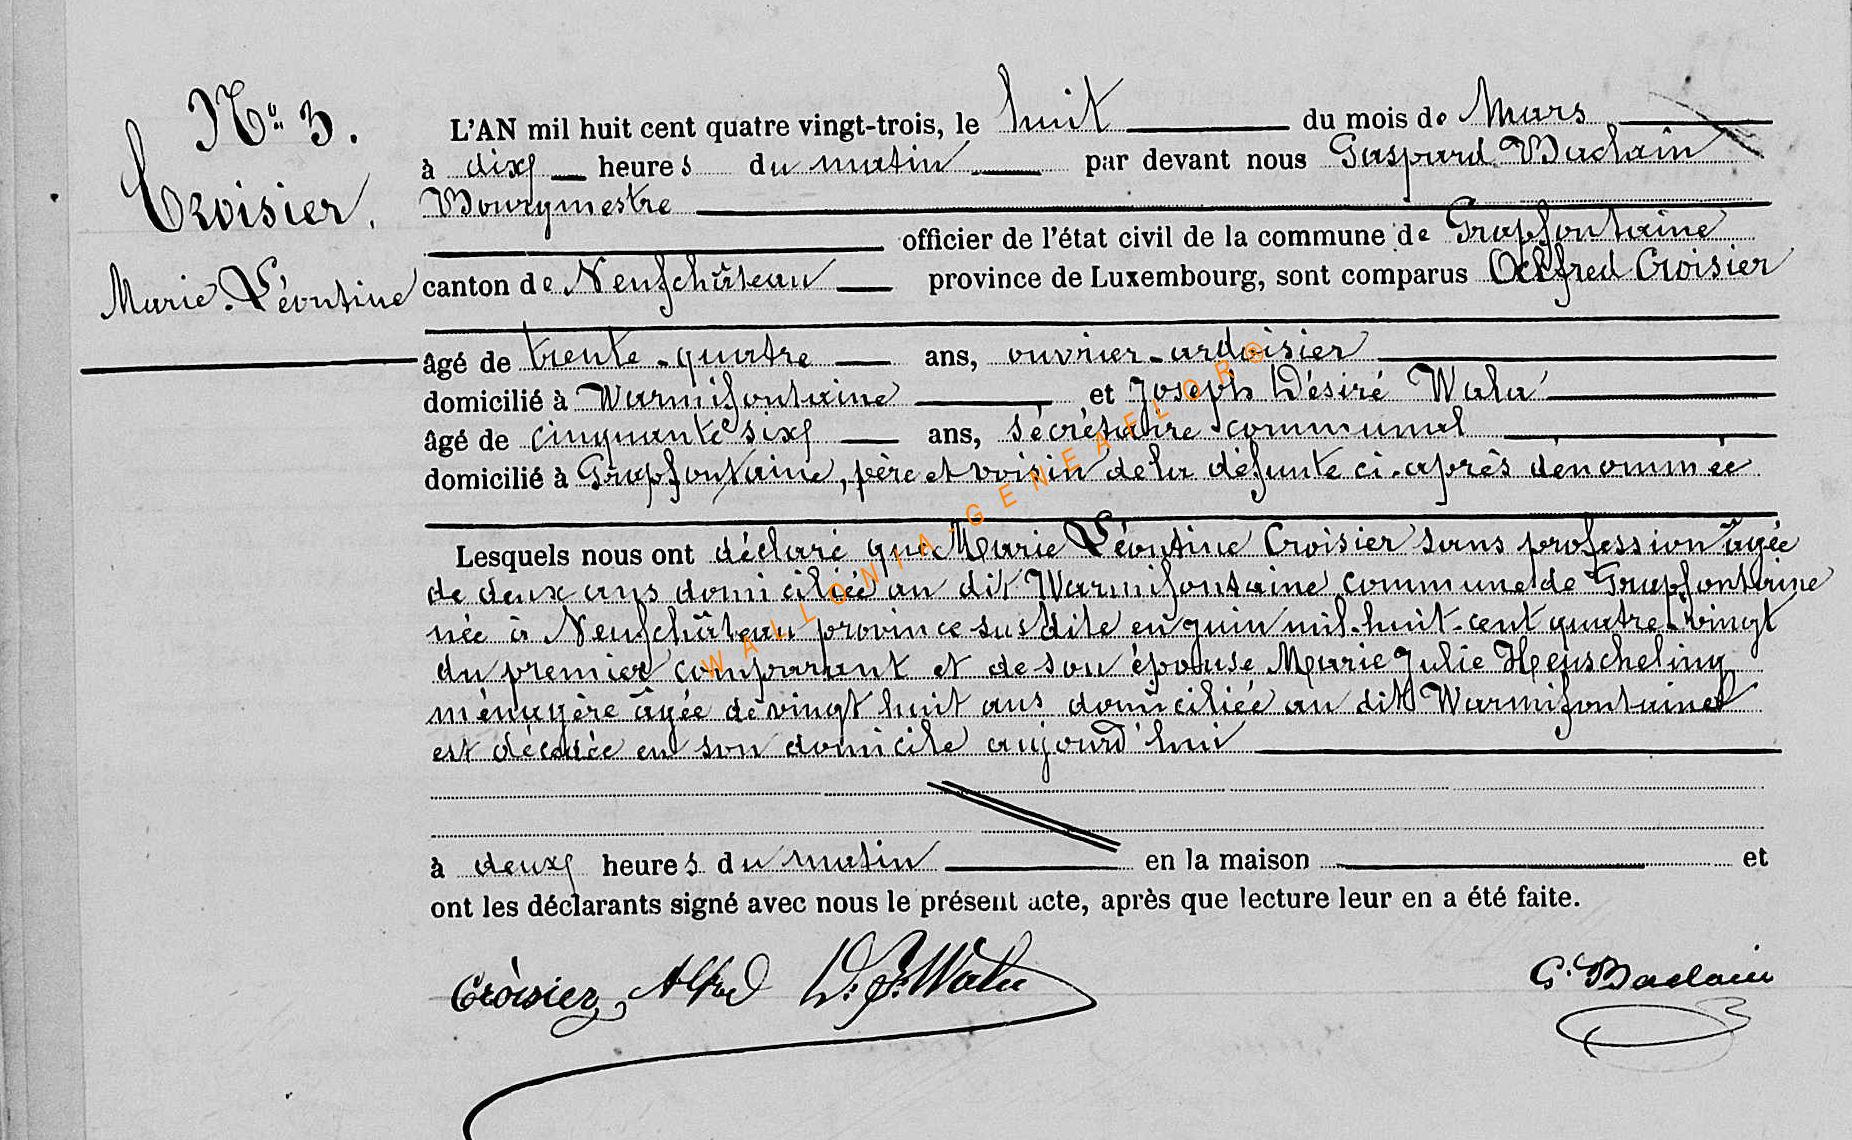 No 3.
Croisier,
Marie Léontine
L'AN mil huit cent quatre vingt-trois, le huit du mois de Mars
à dix heures du matin par devant nous Gaspard Baclain
Bourgmestre
officier de l'état civil de la commune de Grapfontaine
canton de Neufchâteau province de Luxembourg, sont comparus Alfred Croisier
âgé de trente-quatre ans, ouvrier-ardoisier
domicilié à Warmifontaine et Joseph Désiré Walu
âgé de cinquante six ans, sécrétaire communal
domicilié à Grapfontaine, père et voisin de la défunte ci-après dénommée
Lesquels nous ont déclaré que Marie Léontine Croisier sans profession âgée
de deux ans domiciliée au dit Warmifontaine commune de Grapfontaine
née à Neufchâteau province susdite en juin mil-huit-cent quatre-vingt
du premier comparant et de son épouse Marie Julie Heuscheling
ménagère âgée de vingt huit ans domiciliée au dit Warmifontaine
est décédée en son domicile aujourd'hui
à deux heures du matin en la maison et
ont les déclarants signé avec nous le présent acte, après que lecture leur en a été faite.
Croisier Alfred D. J. Walu G. Baclain
WALLONIA-GENEAFLOR®